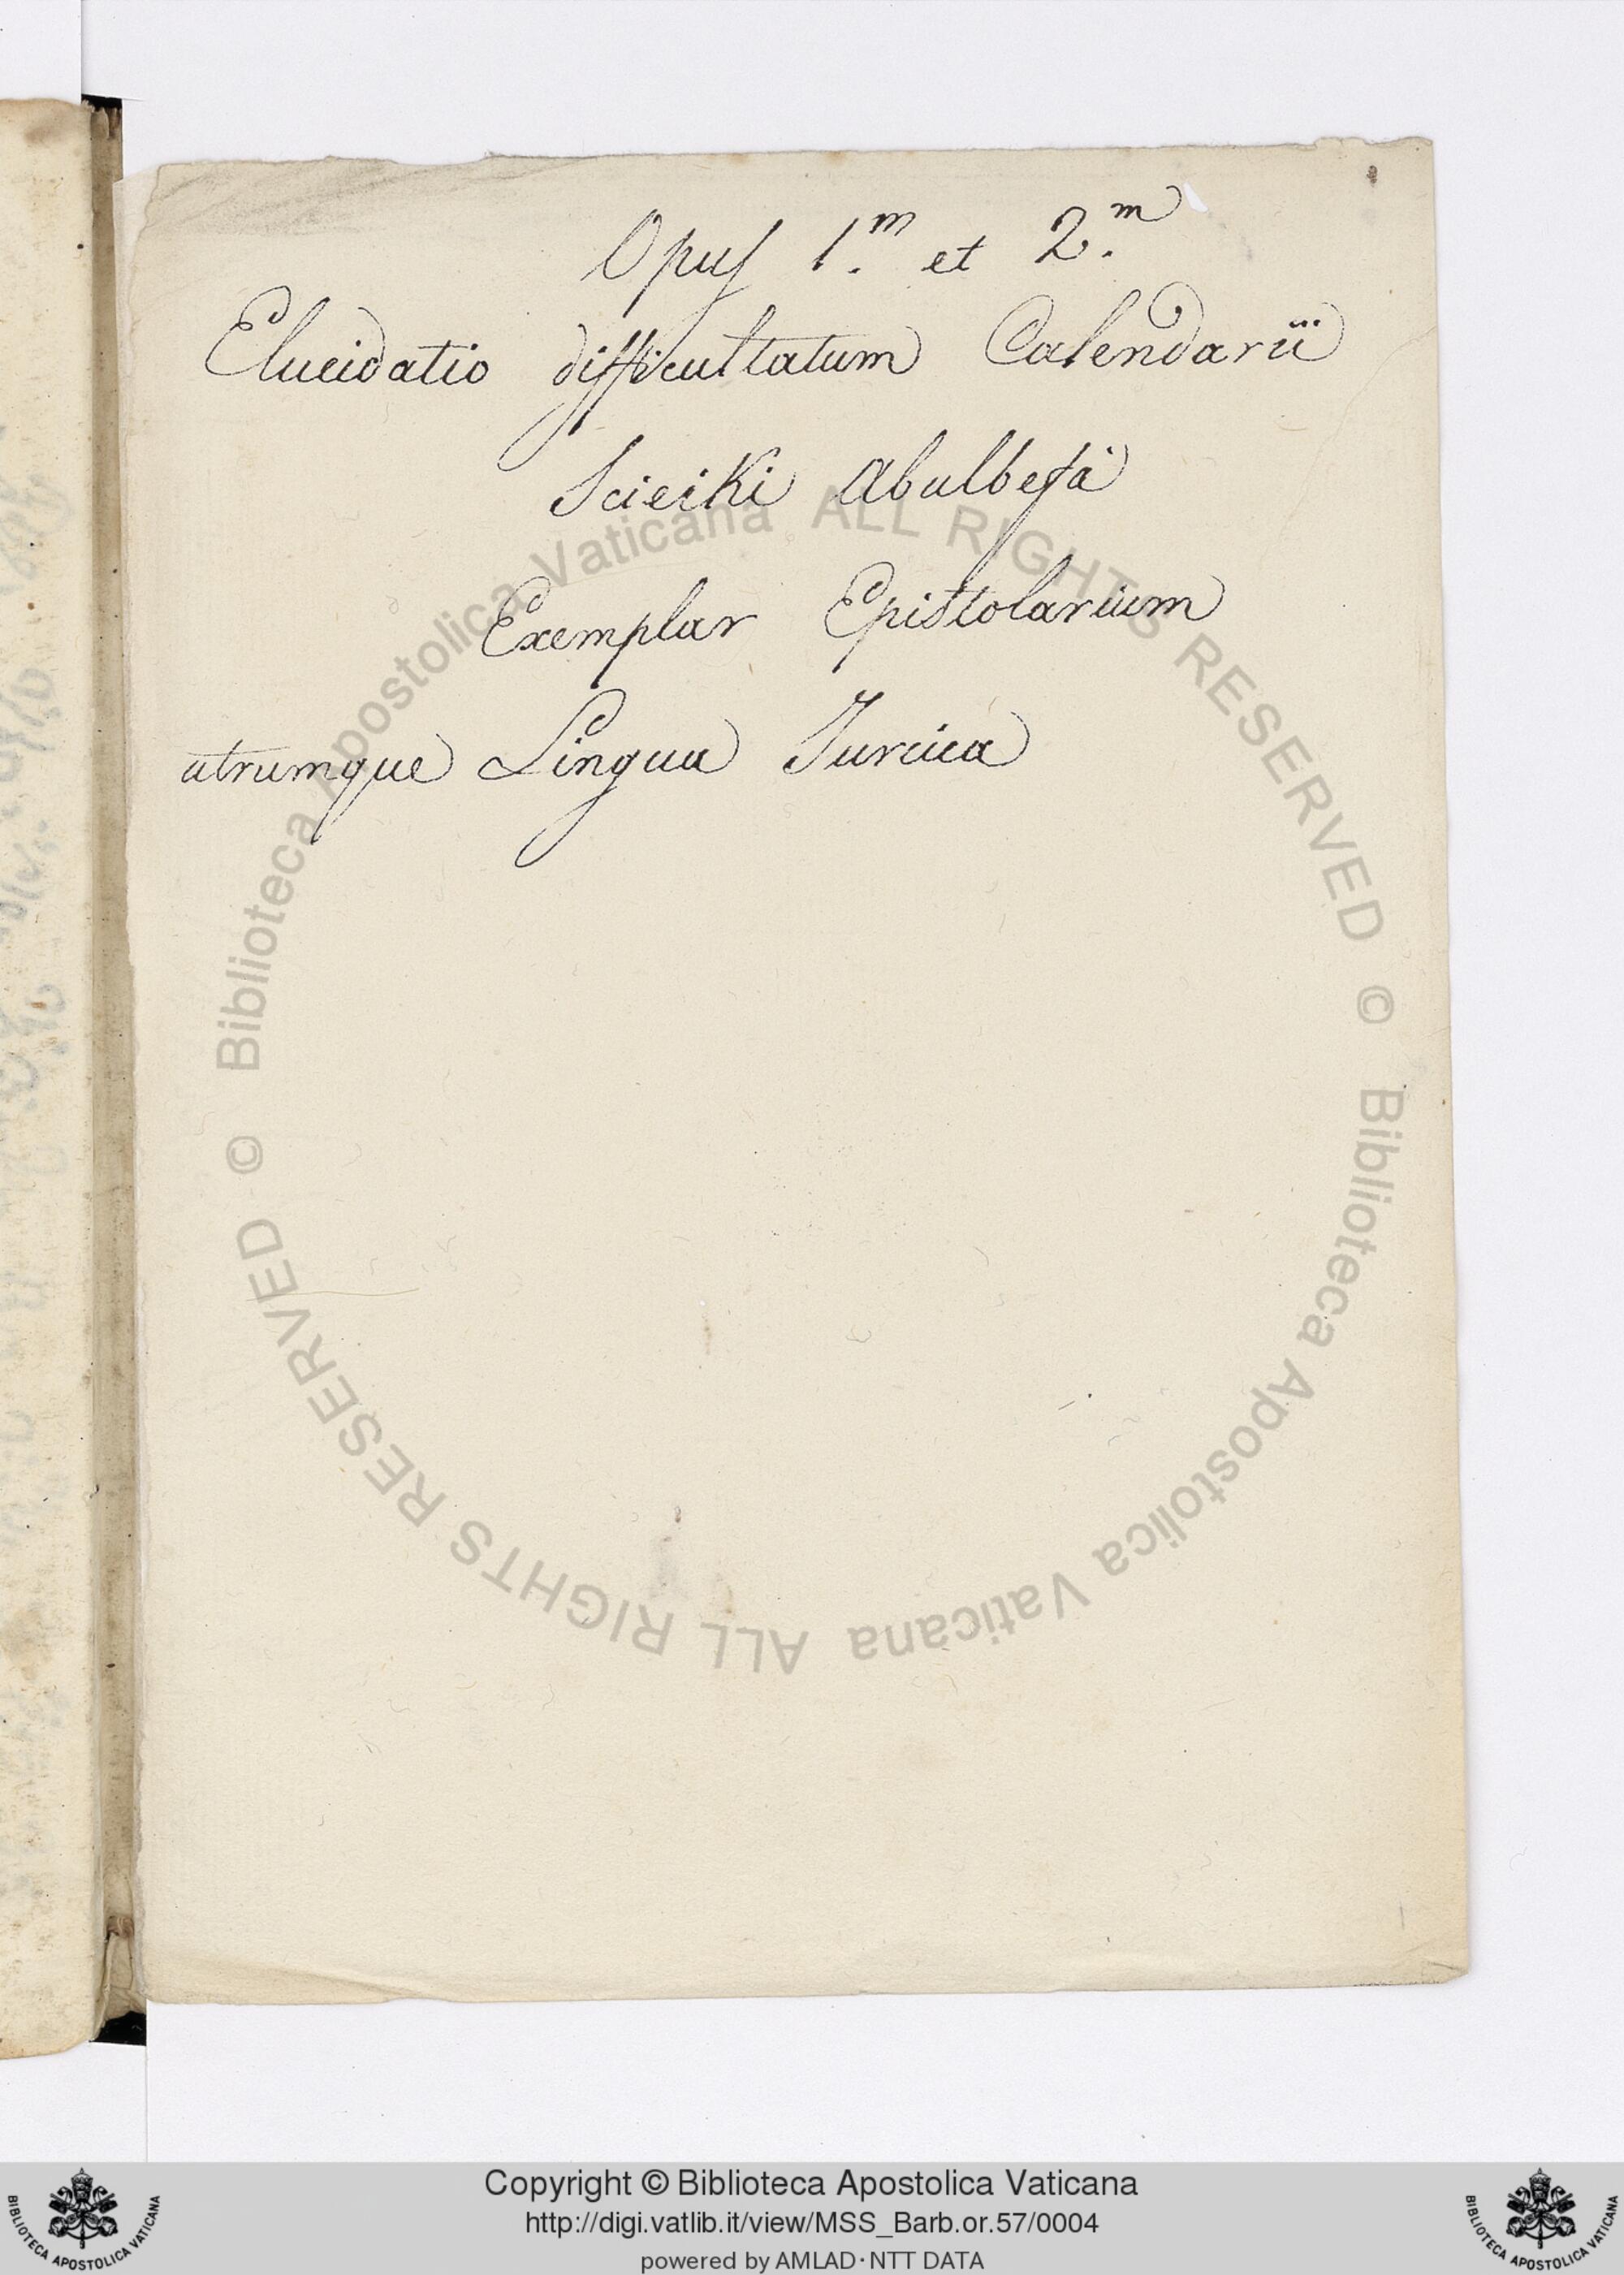 Opus 1.m et 2.m
Elucidatio difficultatum Calendarii
Scieiki Abulbefa
Exemplar Epistolarium
utrumque Lingua Turcica
Biblioteca Apostolica Vaticana ALL RIGHTS RESERVED ©
Biblioteca Apostolica Vaticana ALL RIGHTS RESERVED ©
Copyright © Biblioteca Apostolica Vaticana
http://digi.vatlib.it/view/MSS_Barb.or.57/0004
powered by AMLAD·NTT DATA
BIBLIOTECA APOSTOLICA VATICANA
BIBLIOTECA APOSTOLICA VATICANA